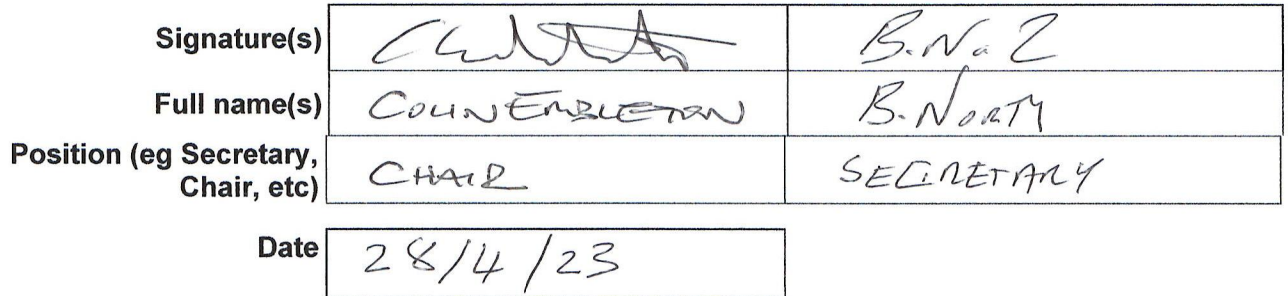 Signature(s) B.No.2
Full name(s) COLIN EMBLETON B. NORTH
Position (eg Secretary,
Chair, etc) CHAIR SECRETARY
Date 28/4/23